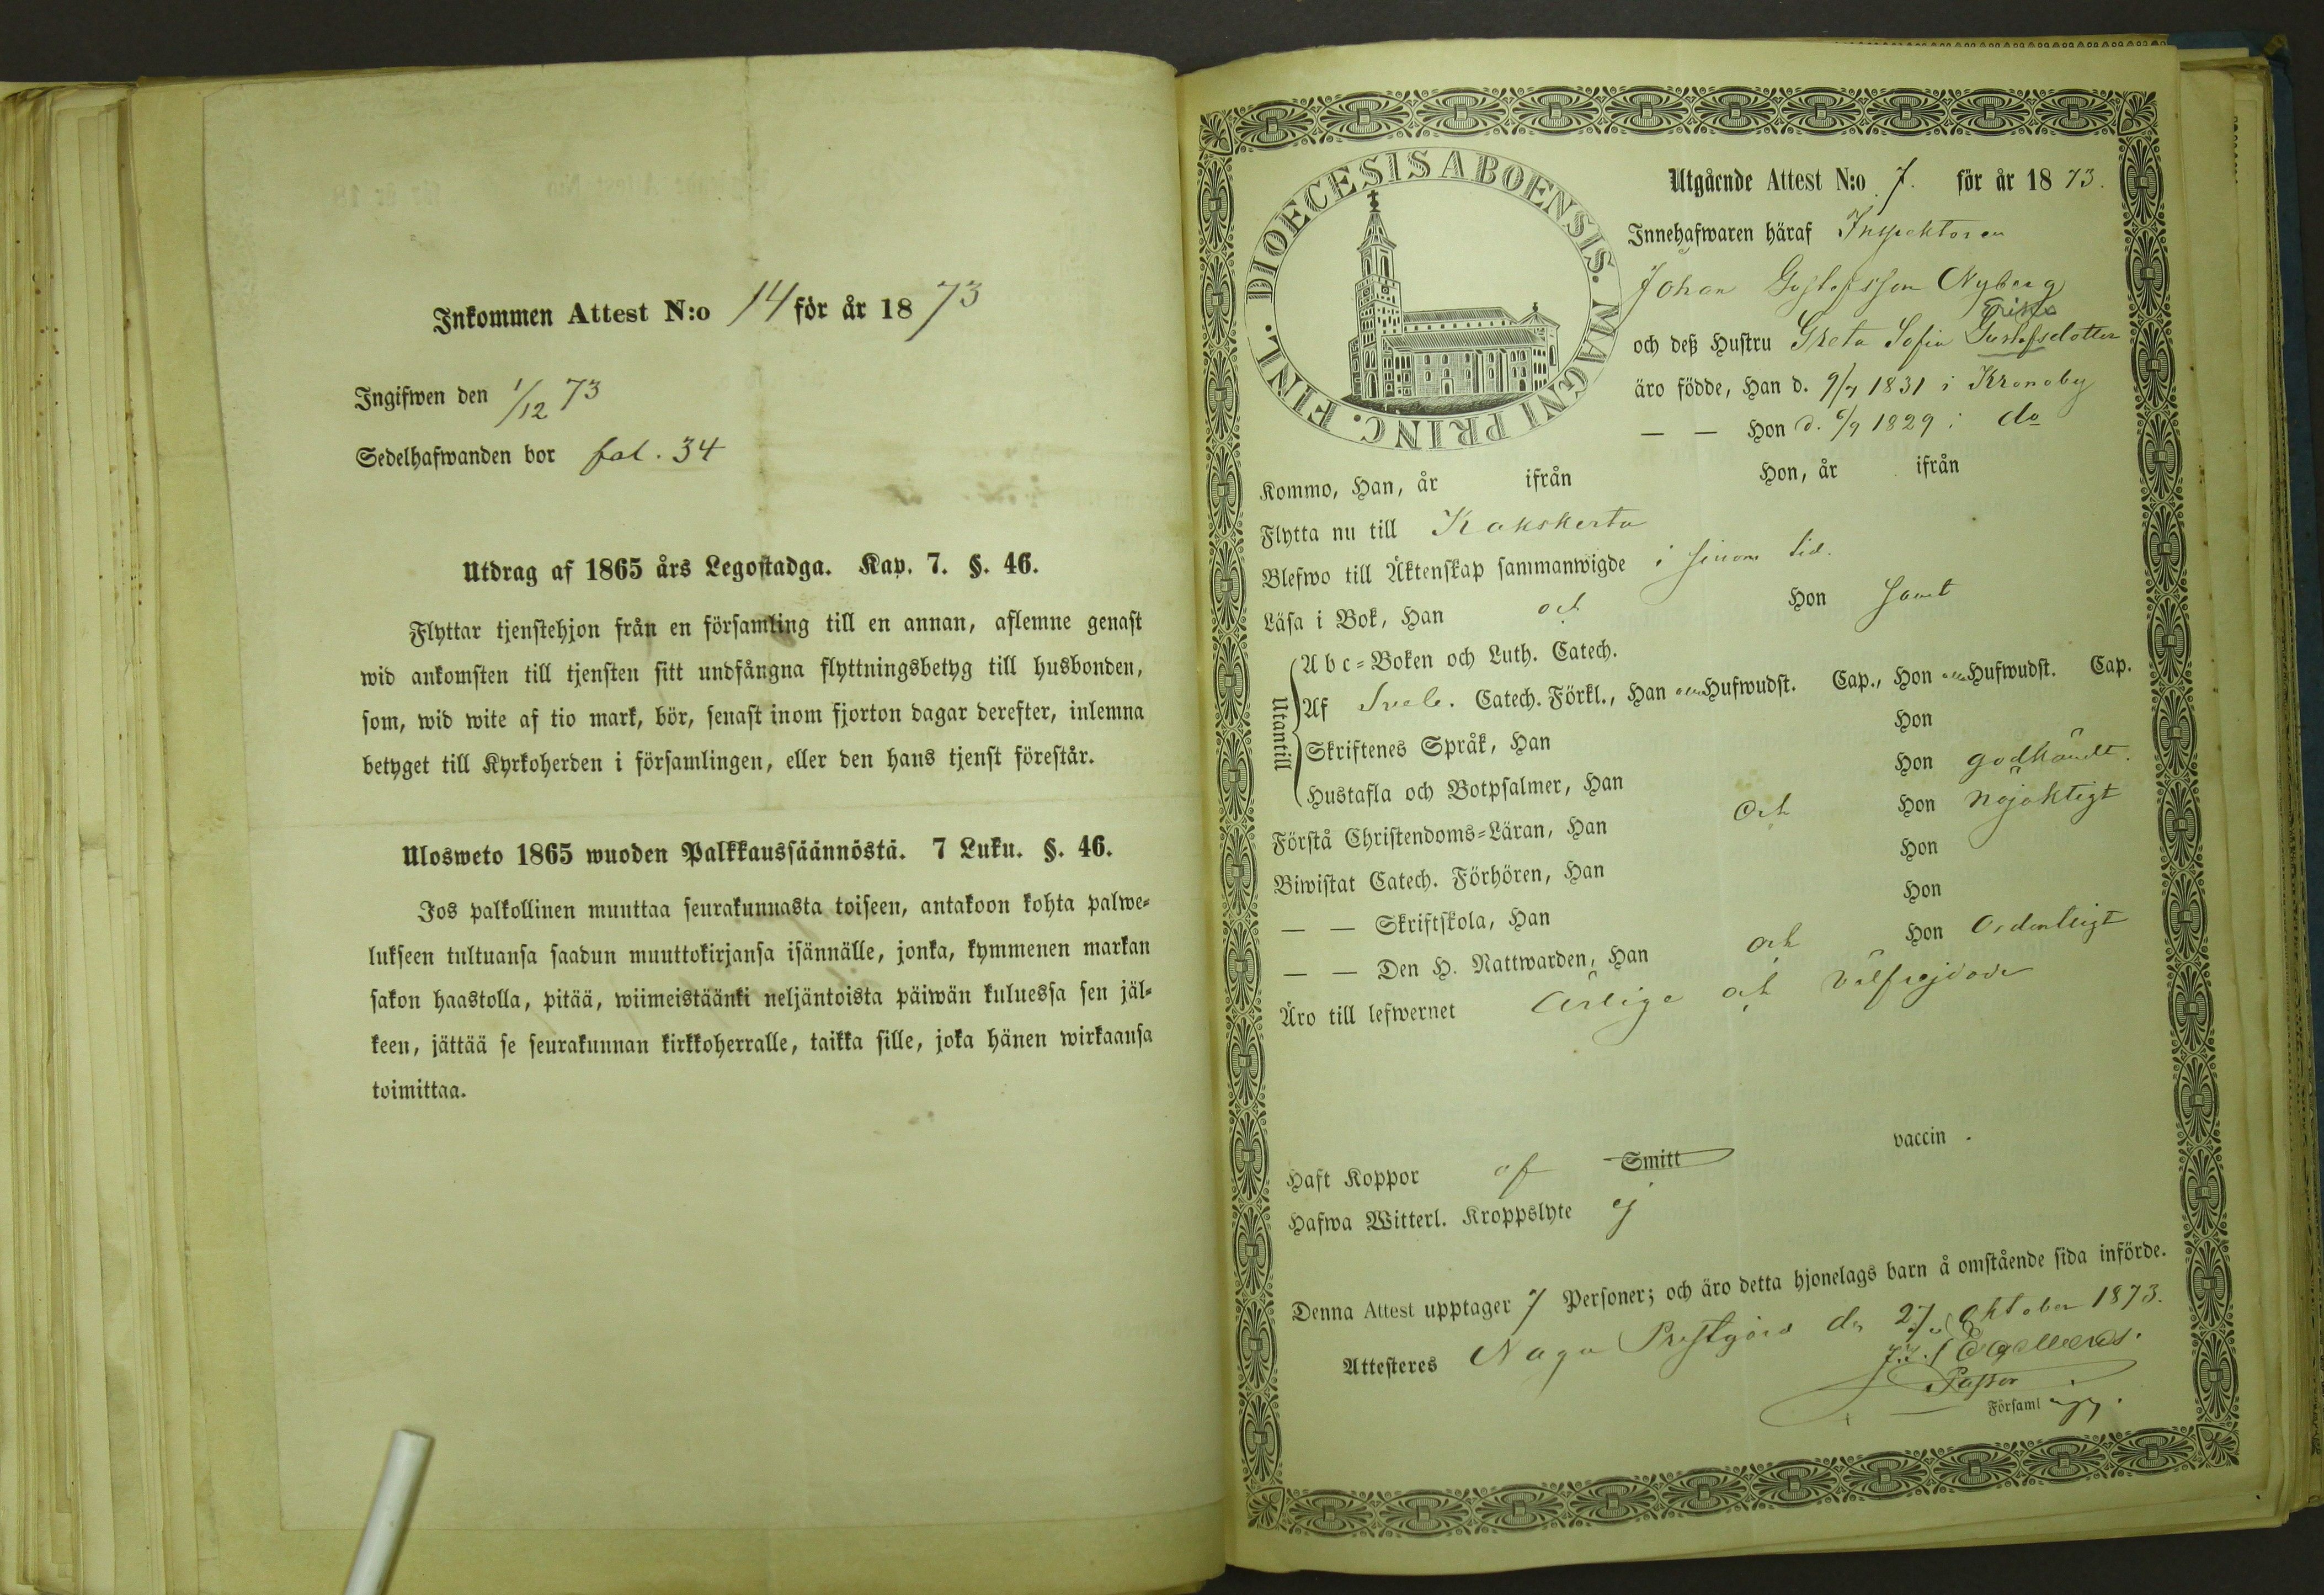 Inkommen Attest N:o 14 för år 1873
Ingifwen den 1/12 73
Sedelhafwanden bor fol. 34
Utdrag af 1865 års Legostadga. Kap. 7. §. 46.
Flyttar tjenstehjon från en församling till en annan, aflemne genast
wid ankomsten till tjensten sitt undfångna flyttningsbetyg till husbonden,
som, wid wite af tio mark, bör, senast inom fjorton dagar derefter, inlemna
betyget till Kyrkoherden i församlingen, eller den hans tjenst förestår.
Ulosweto 1865 wuoden Palkkaussäännöstä. 7 Luku. §. 46.
Jos palkollinen muuttaa seurakunnasta toiseen, antakoon kohta palwe-
lukseen tultuansa saadun muuttokirjansa isännälle, jonka, kymmenen markan
sakon haastolla, pitää, wiimeistäänki neljäntoista päiwän kuluessa sen jäl-
keen, jättää se seurakunnan kirkkoherralle, taikka sille, joka hänen wirkaansa
toimittaa.
DIOECESIS ABOENSIS. MAGNI PRINC. FINL.
Utgående Attest N:o 7. för år 1873.
Innehafwaren häraf Inspektoren
Johan Gustafsson Nyberg
och deß Hustru Greta Sofia Gustafsdotter
äro födde, Han d. 9/7 1831 i Kronoby
— — Hon d. 6/9 1829 i do
Kommo, Han, år ifrån Hon, år ifrån
Flytta nu till Kakskerta
Blefwo till Äktenskap sammanwigde i sinom tid.
Läsa i Bok, Han och Hon samt
Utantill
Abc-Boken och Luth. Catech.
Af Sveb. Catech. Förkl., Han Hufwudst. Cap., Hon Hufwudst. Cap.
Skriftenes Språk, Han Hon
Hustafla och Botpsalmer, Han Hon godkändt.
Förstå Christendoms-Läran, Han och Hon nöjaktigt
Biwistat Catech. Förhören, Han Hon
— — Skriftskola, Han Hon
— — Den H. Nattwarden, Han och Hon ordentligt
Äro till lefwernet ärlige och välfrejdade
Haft Koppor af Smitt vaccin.
Hafwa Witterl. Kroppslyte ej
Denna Attest upptager 7 Personer; och äro detta hjonelags barn å omstående sida införde.
Attesteres Nagu Prestgård den 27 Oktober 1873.
Pastor
Församl